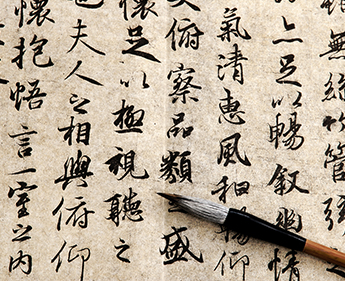 無絲竹管弦之
亦足以暢叙幽情
氣清惠風和暢仰
俯察品類之盛
懷足以極視聽之
也夫人之相與俯仰
懷抱悟言一室之內